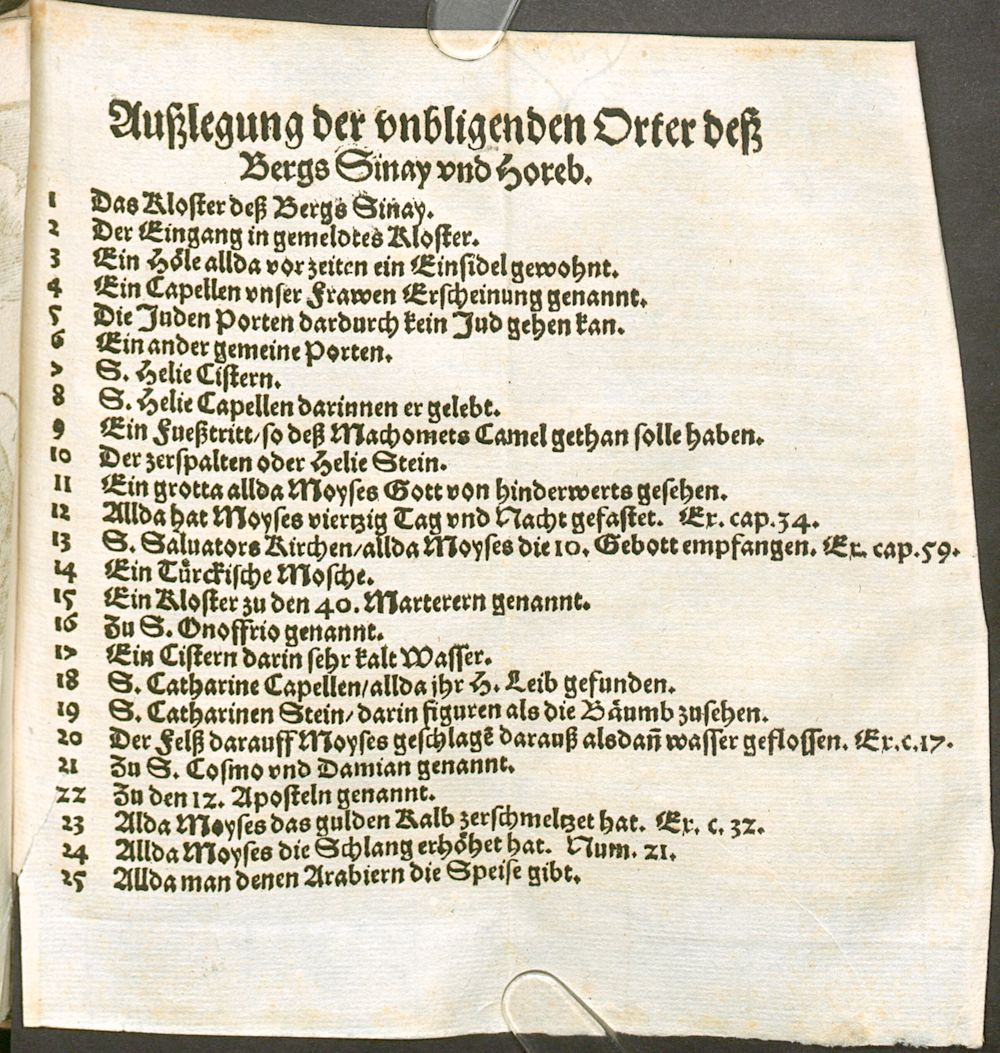 Außlegung der vnbligenden Orter deß
Bergs Sinay vnd Horeb.
1 Das Kloster deß Bergs Sinay.
2 Der Eingang in gemeldtes Kloster.
3 Ein Höle allda vor zeiten ein Einsidel gewohnt.
4 Ein Capellen vnser Frawen Erscheinung genannt.
5 Die Juden Porten dardurch kein Jud gehen kan.
6 Ein ander gemeine Porten.
7 S. Helie Cistern.
8 S. Helie Capellen darinnen er gelebt.
9 Ein Fueßtritt/so deß Machomets Camel gethan solle haben.
10 Der zerspalten oder Helie Stein.
11 Ein grotta allda Moyses Gott von hinderwerts gesehen.
12 Allda hat Moyses viertzig Tag vnd Nacht gefastet. Ex. cap.34.
13 S. Saluators Kirchen/allda Moyses die 10. Gebott empfangen. Ex. cap.59.
14 Ein Türckische Mosche.
15 Ein Kloster zu den 40. Marterern genannt.
16 Zu S. Onoffrio genannt.
17 Ein Cistern darin sehr kalt Wasser.
18 S. Catharine Capellen/allda jhr H. Leib gefunden.
19 S. Catharinen Stein/darin figuren als die Bäumb zusehen.
20 Der Felß darauff Moyses geschlagē darauß alsdañ wasser geflossen. Ex.c.17.
21 Zu S. Cosmo vnd Damian genannt.
22 Zu den 12. Aposteln genannt.
23 Alda Moyses das gulden Kalb zerschmeltzet hat. Ex. c. 32.
24 Allda Moyses die Schlang erhöhet hat. Num. 21.
25 Allda man denen Arabiern die Speise gibt.